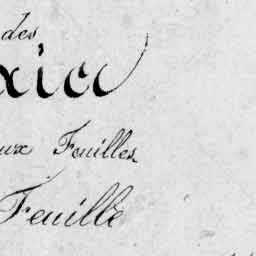 des
xico
aux Feuilles
Feuille